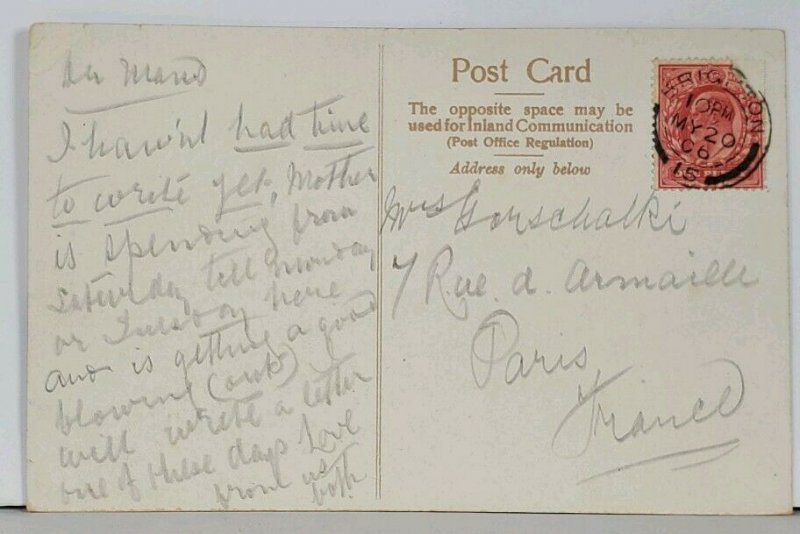 Dr Maud
I hav'nt had time
to write yet, Mother
is spending from
Saturday till Monday
or Tuesday here
and is getting a good
blowing (out)
will write a letter
one of these days Love
from us
both
Post Card
The opposite space may be
used for Inland Communication
(Post Office Regulation)
Address only below
BRIGHTON
10 PM
MY 20
06
15
Mrs Gorschalki
7 Rue d. Armaille
Paris
France